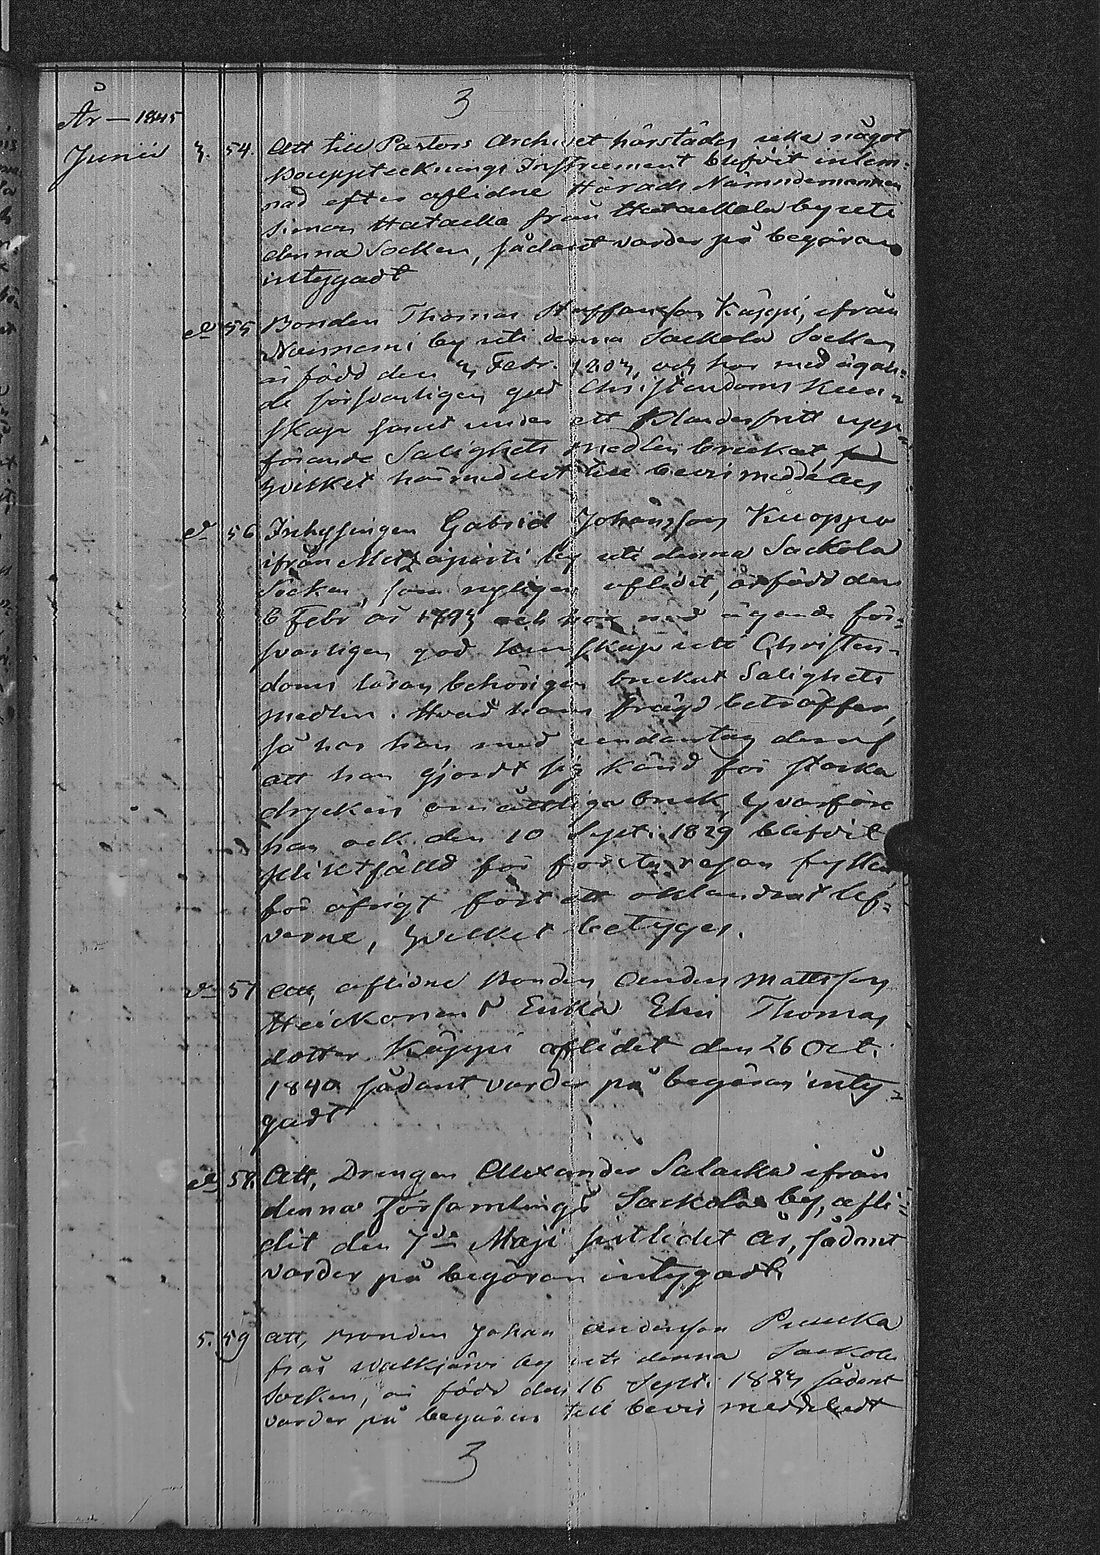 3
År — 1845
Junii 3. 54. Att till Pastors Archivet härstädes icke något
Boupptecknings Instrument blifvit inlem-
nad efter aflidne Härads Nämndemannen
Simon Hatacka från Hatackala by uti
denna Socken, sådant varder på begäran
intygadt
do 55 Bonden Thomas Staffansson Käppi, ifrån
by uti denna Sackola Socken
är född den Febr. och har med ägan-
de försvarligen god Christendoms Kun-
skap samt under ett klanderfritt upp-
förande Salighets medlen brukat,
hvilket härmedelst till bevis meddelas
do 56 Inhysingen Gabriel Johansson Kuoppa
ifrån by uti denna Sackola
Socken, som nyligen aflidit, är född den
6 Febr år och har med ägande för-
svarligen god kunskap uti Christen-
doms läran behörigen brukat Salighets
medlen. Hvad hans frägd beträffar,
så har han med undantag deraf
att han gjordt sig känd för starka
dryckers omåttliga bruk, hvarföre
han ock den 10 Sept. 1829 blifvit
pliktfälld för första resan fylleri
för öfrigt fört ett oklandrat lef-
verne, hvilket betyges.
do 57 Att, aflidne Bonden Anders Mattsson
Heickonens Enka Elin Thomas
dotter Käppi aflidit den 26 Oct.
1840 sådant varder på begäran inty-
gadt
do 58. Att, Drengen Alexander Salacka ifrån
denna Församlings Sackola by, afli-
dit den 7de Maji sistledet år, sådant
varder på begäran intygadt.
5. 59 Att, Bonden Johan Andersson Puucka
från Walkjärvi by uti denna Sackola
Socken, är född den 16 Sept. sådant
varder på begäran till bevis meddeladt
3